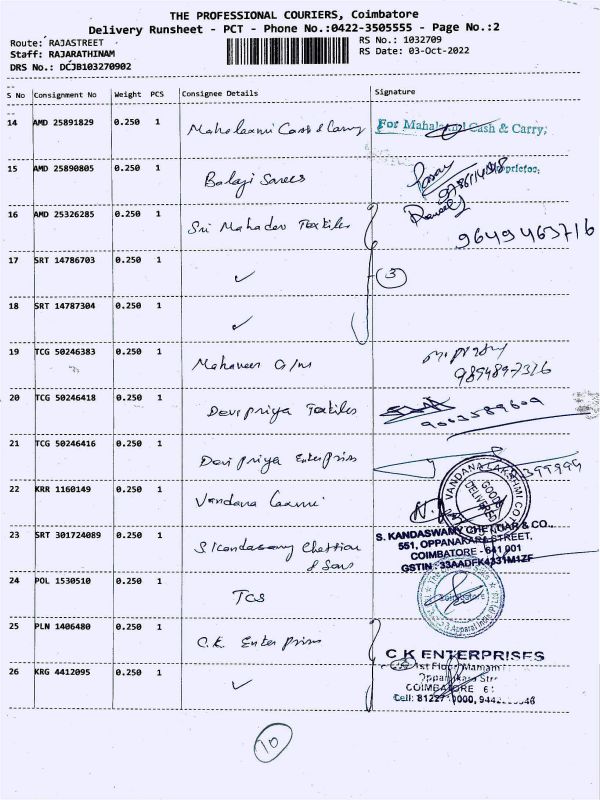 THE PROFESSIONAL COURIERS, Coimbatore
Delivery Runsheet - PCT - Phone No.:0422-3505555 - Page No.:2
Route: RAJASTREET
RS No.: 1032709
Staff: RAJARATHINAM
RS Date: 03-Oct-2022
DRS No.: DCJB103270902
S No Consignment No Weight PCS Consignee Details Signature
14 AMD 25891829 0.250 1 Mahalaxmi Cash & Carry For Mahalaxmi Cash & Carry,
15 AMD 25890805 0.250 1 Balaji Sarees Proprietor.
16 AMD 25326285 0.250 1 Sri Mahadev Textiles 9649463716
17 SRT 14786703 0.250 1 ✓ 3
18 SRT 14787304 0.250 1 ✓
19 TCG 50246383 0.250 1 Mahaveer 9894897316
20 TCG 50246418 0.250 1 Devi Priya Textiles 9003589609
21 TCG 50246416 0.250 1 Devi Priya Enterprises
VANDANA LAKSHMI CO
GOODS DELIVERED
22 KRR 1160149 0.250 1 Vandana Laxmi
23 SRT 301724089 0.250 1 S Kandasamy Chettiar & Sons
S. KANDASWAMY CHETTIAR & CO.,
551, OPPANAKARA STREET,
COIMBATORE - 641 001
GSTIN : 33AADFK4331M1ZF
24 POL 1530510 0.250 1 TCS
25 PLN 1406480 0.250 1 C.K. Enterprises
C K ENTERPRISES
26 KRG 4412095 0.250 1 ✓
1st Floor
COIMBATORE
Cell: 81227
10